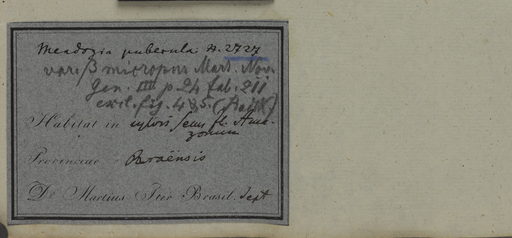 Mendozia puberula. n. 2727
var: β micropus Mart. Nov.
Gen. III p 24 tab. 211
excl. fig. 4 & 5. 
Habitat in sylvis secus fl. Ama-
zonum
Provinciae Paraënsis
Dr Martius Iter Brasil. Sept